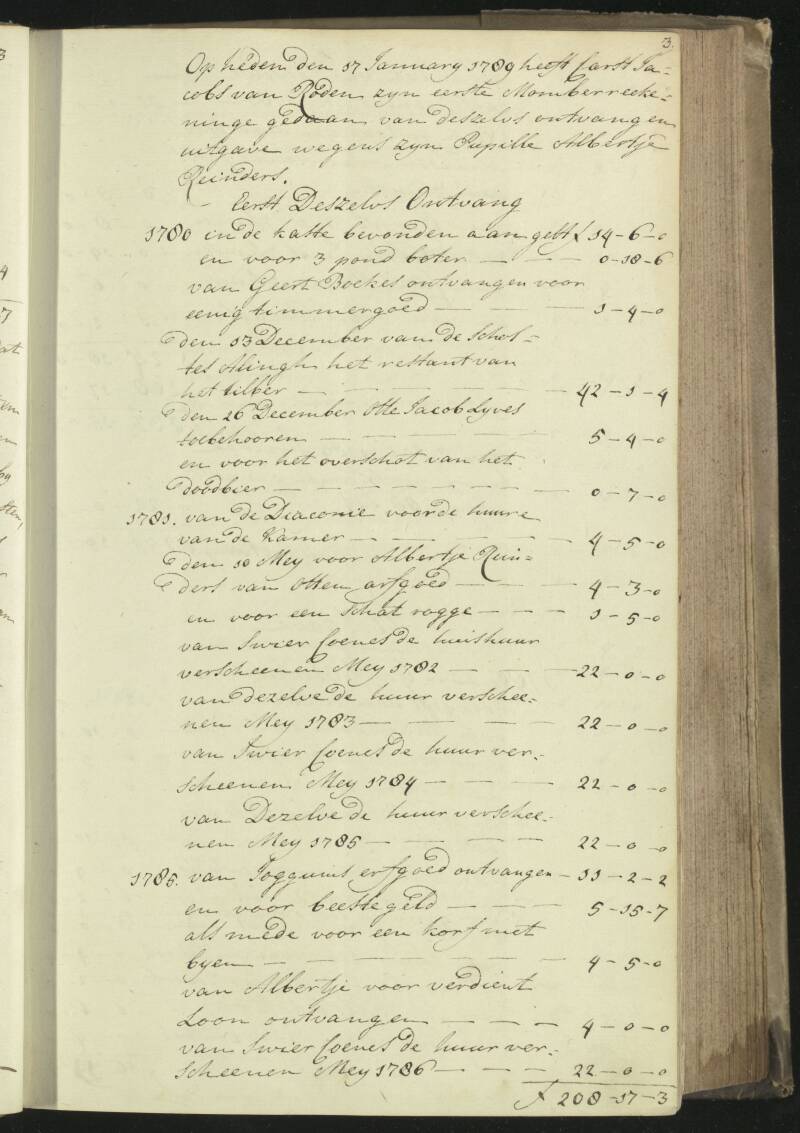 3.
Op heden den 17 January 1789 heeft Carst Ja=
cobs van Roden zyn eerste Momberreeke=
ninge gedaan van deszelvs ontvang en
uitgave wegens zyn Pupille Albertje
Reinders.
Eerst Deszelvs Ontvang
1780 in de kasse bevonden aan gelt f 14-6-0
en voor 3 pond boter — — — 0-18-6
van Geert Boekes ontvangen voor
eenig timmergoed — — — 1-4-0
den 13 December van de Schol=
tes Alingh het restant van
het silber — — — — — 42-1-4
den 26 December Otte Jacob Lyves
toebehooren — — — — 5-4-0
en voor het overschot van het
doodbier — — — — — — 0-7-0
1781. van de Diaconie voor de huure
van de Kamer — — — — 4-5-0
den 10 Mey voor Albertje Rein=
ders van Otten arfgoed — — — 4-3-0
en voor een schat rogge — — — 1-5-0
van Swier Coenes de huishuur
verscheenen Mey 1782 — — — 22-0-0
van dezelve de huur verschee=
nen Mey 1783 — — — — 22-0-0
van Swier Coenes de huur ver=
scheenen Mey 1784 — — — 22-0-0
van Dezelve de huur verschee=
nen Mey 1785 — — — — 22-0-0
1785. van Joggums erfgoed ontvangen — 11-2-2
en voor beestegeld — — — 5-15-7
als mede voor een korf met
byen — — — — — — 4-5-0
van Albertje voor verdient
Loon ontvangen — — — — 4-0-0
van Swier Coenes de huur ver=
scheenen Mey 1786 — — — 22-0-0
f 208-17-3